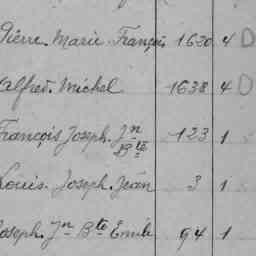 Pierre. Marie. François 1630 4 D
Alfred. Michel 1638 4 D
François Joseph. Jn Bte 123 1
Louis. Joseph. Jean 3 1
Joseph. Jn Bte Emile 94 1